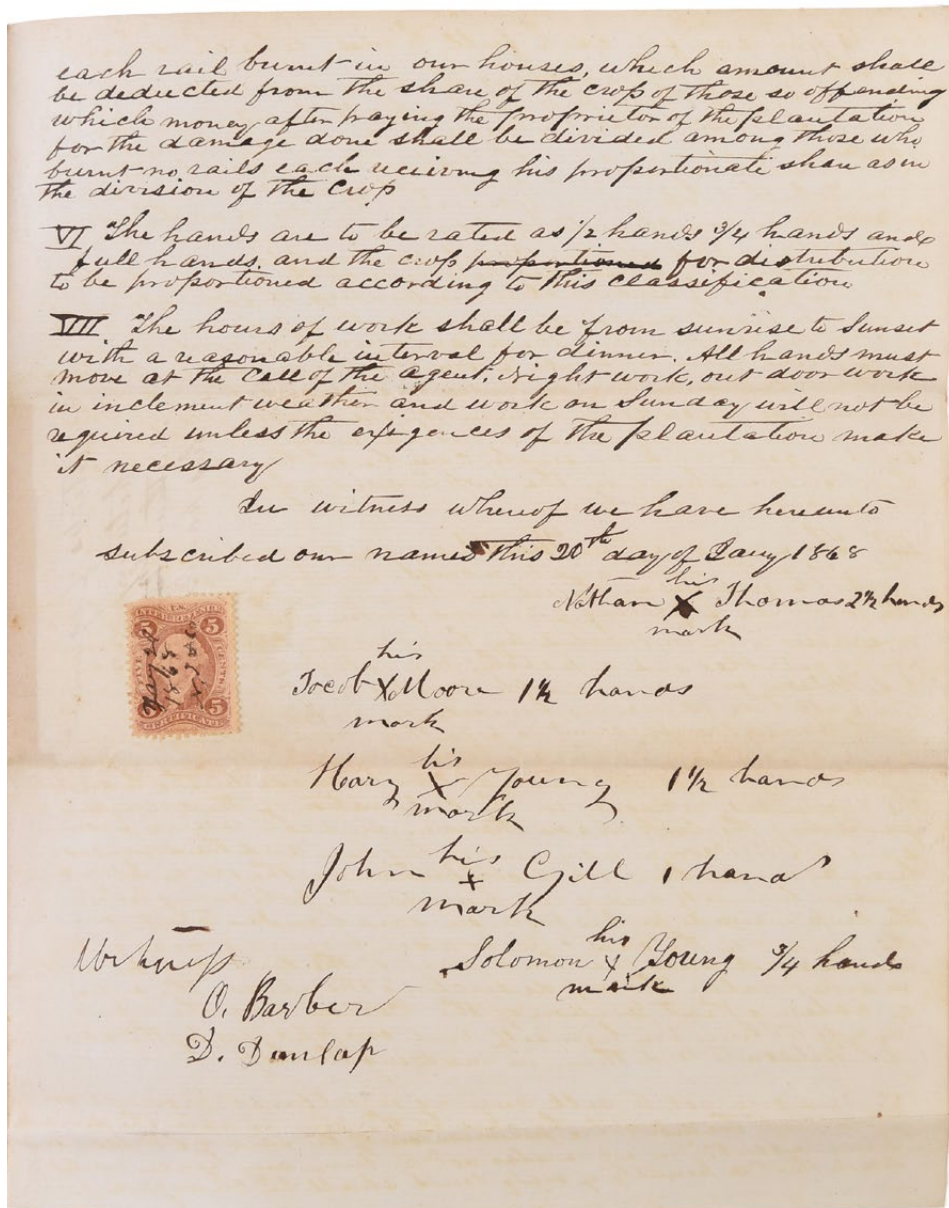 each rail burnt in our houses, which amount shall
be deducted from the share of the crop of those so offending
which money after paying the proprietor of the plantation
for the damage done shall be divided among those who
burnt no rails each receiving his proportionate share as in
the division of the crop
VI The hands are to be rated as 1/2 hands 3/4 hands and
full hands, and the crop proportioned for distribution
to be proportioned according to this classification
VII The hours of work shall be from sunrise to sunset
with a reasonable interval for dinner. All hands must
move at the call of the agent. Night work, out door work
in inclement weather and work on Sunday will not be
required unless the exigences of the plantation make
it necessary
In witness whereof we have hereunto
subscribed our names this 20th day of Jany 1868
his
Nathan X Thomas 2 1/2 hands
mark
U.S. INTER. REVENUE
5 5
FIVE CENTS
5 5
CERTIFICATE
his
Jacob X Moore 1 1/2 hands
mark
his
Harry X Young 1 1/2 hands
mark
his
John X Gill 1 hand
mark
his
Solomon X Young 3/4 hands
mark
Witness
O. Barber
D. Dunlap